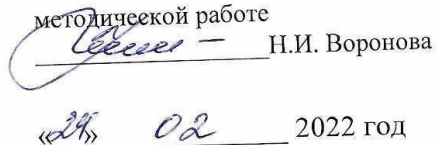 методической работе
Н.И. Воронова
«24» 02 2022 год